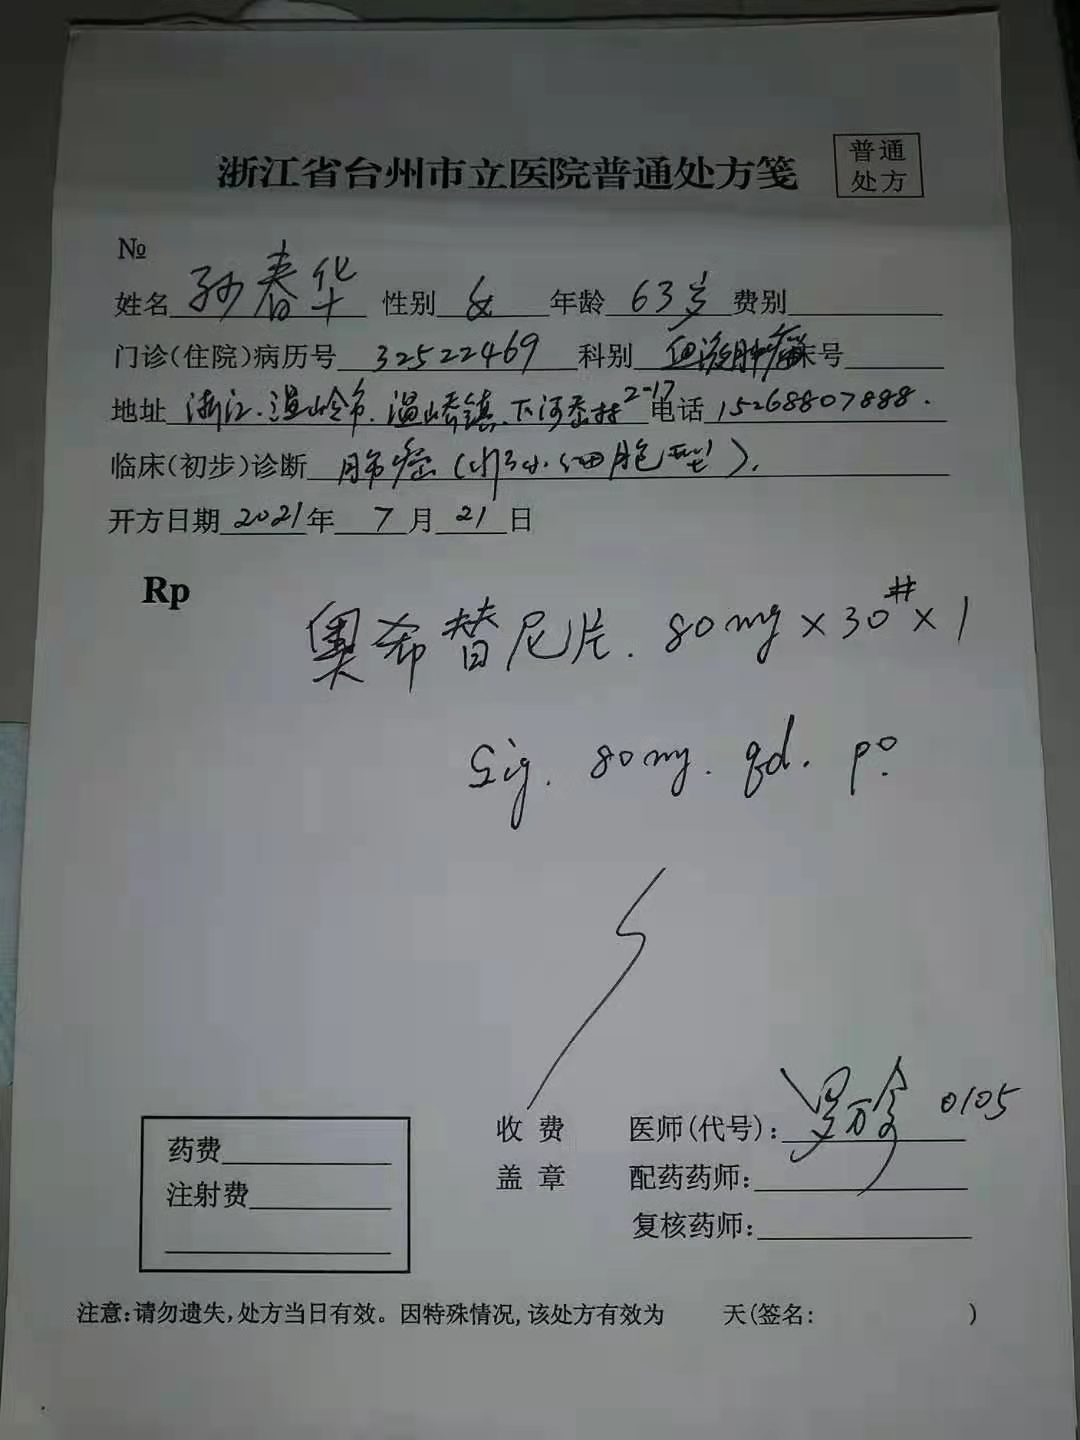 浙江省台州市立医院普通处方笺
普通
处方
№
姓名 孙春华 性别 女 年龄 63岁 费别
门诊(住院)病历号 32522469 科别 血液肿瘤 床号
地址 浙江.温岭市.温峤镇.下河岙村2-17 电话 15268807888.
临床(初步)诊断 肺癌(非小细胞型).
开方日期 2021年 7月 21日
Rp
奥希替尼片. 80mg×30#×1
Sig. 80mg. qd. po.
收费 医师(代号): 0105
盖章 配药药师:
复核药师:
药费
注射费
注意:请勿遗失,处方当日有效。因特殊情况,该处方有效为 天(签名: )